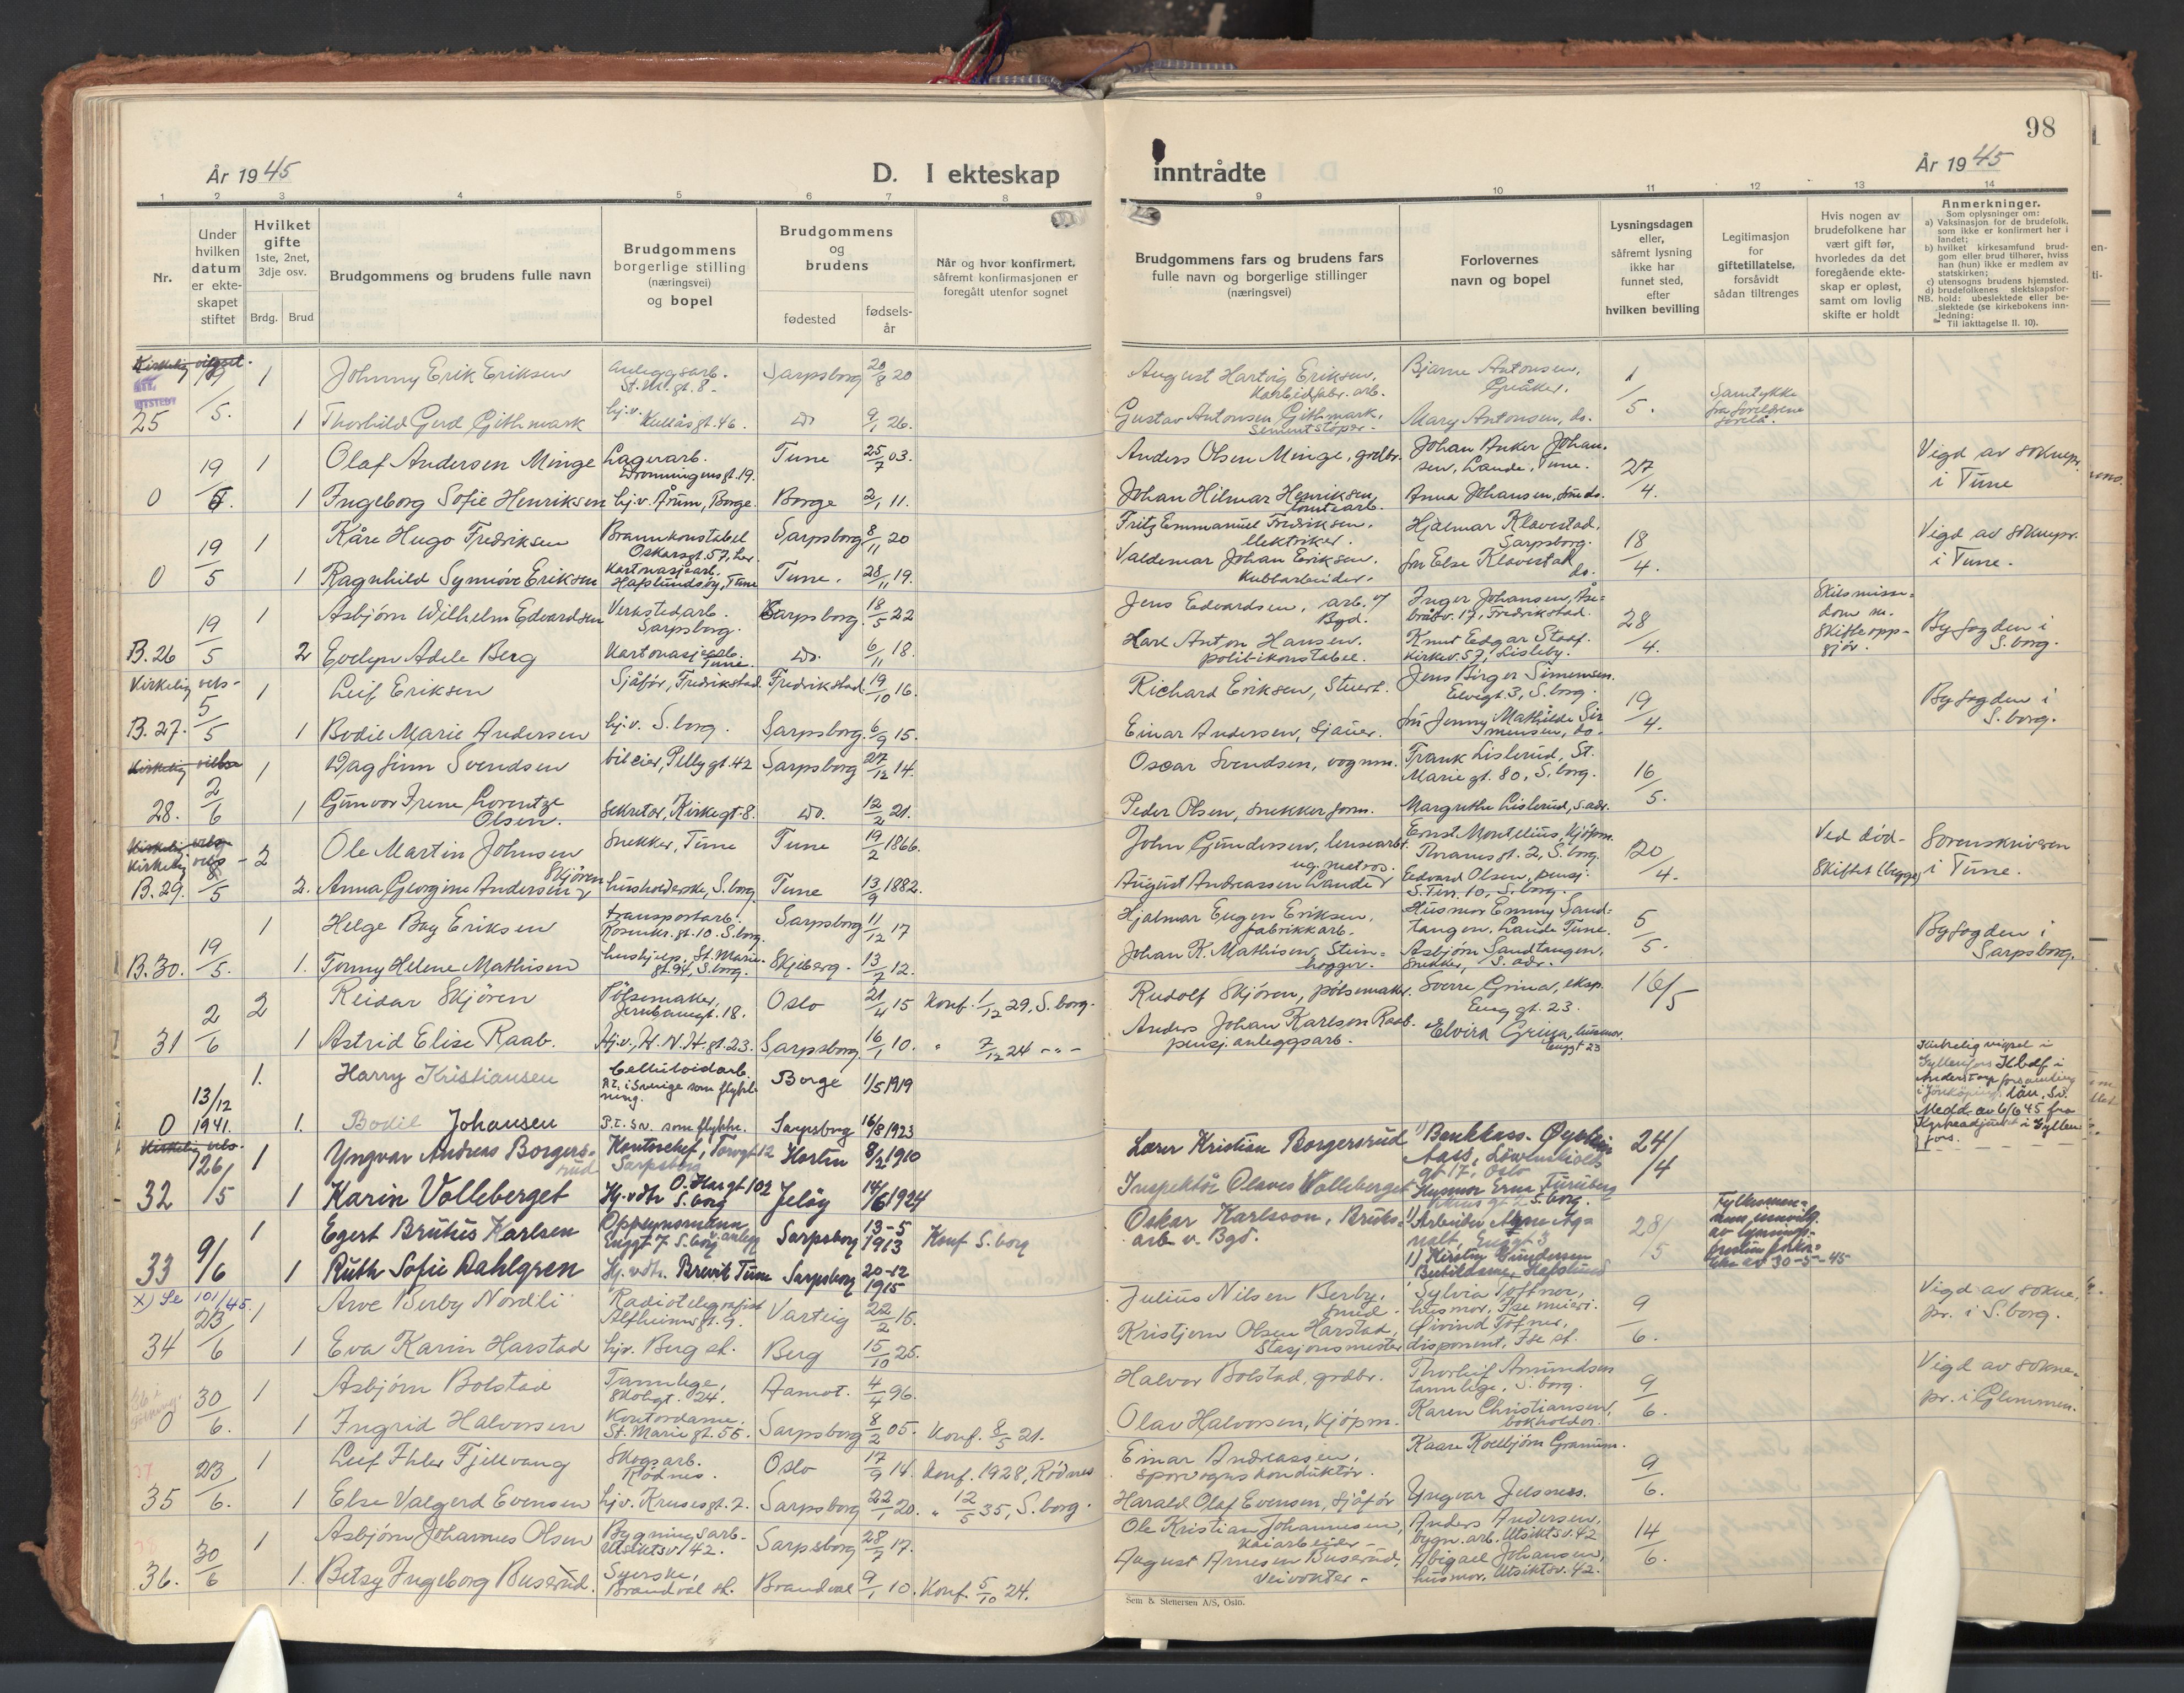 98
År 1945
D. I ekteskap
inntrådte
År 1945
1 2 3 4 5 6 7 8 9 10 11 12 13 14
Nr.
Under hvilken datum er ekteskapet stiftet
Hvilket gifte 1ste, 2net, 3dje osv.
Brdg. Brud
Brudgommens og brudens fulle navn
Brudgommens borgerlige stilling (næringsvei) og bopel
Brudgommens og brudens
fødested
fødsels-år
Når og hvor konfirmert, såfremt konfirmasjonen er foregått utenfor sognet
Brudgommens fars og brudens fars fulle navn og borgerlige stillinger (næringsvei)
Forlovernes navn og bopel
Lysningsdagen eller, såfremt lysning ikke har funnet sted, efter hvilken bevilling
Legitimasjon for giftetillatelse, forsåvidt sådan tiltrenges
Hvis nogen av brudefolkene har vært gift før, hvorledes da det foregående ekteskap er opløst, samt om lovlig skifte er holdt
Anmerkninger.
Som oplysninger om:
a) Vaksinasjon for de brudefolk, som ikke er konfirmert her i landet;
b) hvilket kirkesamfund brudgom eller brud tilhører, hviss han (hun) ikke er medlem av statskirken;
c) utensogns brudens hjemsted.
d) brudefolkenes slektskapsforhold: ubeslektede eller beslektede (se kirkebokens innledning:
NB. Til iakttagelse II. 10).
Kirkelig vigsel.
19/5. 1 Johnny Erik Eriksen Anleggsarb. St. M. gt. 8 Sarpsborg 20/8 20 August Hartvig Eriksen, Karbidfabr. arb. Bjarne Antonsen, Greåker. 1/5. Samtykke fra foreldrene foreld.
25 1 Thorhild Gerd Githmark hj.v. Kullåsgt. 46. do 9/1 26. Gustav Antonsen Githmark, Sementstøper. Mary Antonsen, do.
19/5 1 Olaf Andersen Minge Lagerarb. Dronningensgt. 19. Tune 25/7 03. Anders Olsen Minge, grdbr. Johan Anker Johansen, Lande, Tune. 27/4. Vigd av soknepr. i Tune
0 1 Ingeborg Sofie Henriksen hj.v. Årum, Borge. Borge 2/1 11. Johan Hilmar Henriksen, tomtearb. Anna Johansen, do.
19/5 1 Kåre Hugo Fredriksen Brannkonstabel Oskarsgt. 57, her Sarpsborg 8/11 20 Fritz Emmanuel Fredriksen. elektriker. Hjalmar Klavestad, Sarpsborg. 18/4. Vigd av soknepr. i Tune.
0 1 Ragnhild Synnöve Eriksen Kartonasjearb. Hafslundsöy, Tune Tune. 28/11 19. Valdemar Johan Eriksen. Kubbarbeider. fru Else Klavestad do.
19/5 1 Asbjörn Wilhelm Edvardsen Verkstedarb. Sarpsborg. Sarpsborg. 18/5 22 Jens Edvardsen, arb. v/ Bgd. Inger Johansen, Fredrikstad. 28/4. Skilsmissedom m. Skifteoppgjör. Byfogden i S.borg.
B.26 2 Evelyn Adele Berg Kartonasjearb. Tune. do. 6/11 18. Karl Anton Hansen. politikonstabel. Knut Edgar Staaf. Kirkev. 57, Lisleby.
Kirkelig vels-
5/5 1 Leif Eriksen Sjåför, Fredrikstad Fredrikstad 19/10 16. Richard Eriksen, Stuert. Jens Birger Simensen. Elvegt. 3, S.borg. 19/4. Byfogden i S.borg.
B.27. 1 Bodil Marie Andersen hj.v. S.borg. Sarpsborg. 6/9 15. Einar Andersen, Sjauer. fru Jenny Mathilde Simensen, do.
Kirkelig vielse
2/6 1 Dagfinn Svendsen bileier, Pellygt. 42 Sarpsborg 27/12 14. Oscar Svendsen, vognm. Frank Lislerud, St. Marie gt. 80, S.borg. 16/5.
28. 1 Gunvor Irene Lorentze Olsen. Sekretær, Kirkegt. 8. do. 12/2 21. Peder Olsen, snekkerform. Margrethe Lislerud, s.adr.
Kirkelig vels-
Kirkelig vels-
8/5 2 Ole Martin Johnsen Snekker, Tune Tune 19/2 1866. John Gundersen, lensearb. Ernst Montelius, kjöpm. Thranesgt. 2, S.borg. 20/4. Ved död- Skiftet (begge) Sorenskriveren i Tune.
B.29. 2. Anna Georgine Andersen Skjören husholderske, S.borg Tune 13/9 1882. August Andreassen Lande ug. matros. Edvard Olsen, pensj. S.Tun. 10, S.borg.
19/5. 1 Helge Bay Eriksen transportarb. Rosenkr. gt. 10. S.borg. Sarpsborg 11/12 17 Hjalmar Eugen Eriksen, fabrikkarb. Husmor Emmy Sandtangen. Lande Tune. 5/5. Byfogden i Sarpsborg.
B.30. 1. Tonny Helene Mathisen hushjelp, St. Marie gt. 94, S.borg. Skjeberg. 13/2 12. Johan K. Mathisen, Steinhogger. Asbjörn Sandtangen. Snekker, S. adr.
2/6 2 Reidar Skjören Pölsemaker, Jernbanegt. 18. Oslo 21/4 15 Konf. 1/12 29, S.borg. Rudolf Skjören, pölsemaker. Sverre Grina, eksp. Enggt. 23. 16/5
31 1 Astrid Elise Raab. Hj.v., H.N.H. gt. 23. Sarpsborg 16/1 10. " 7/12 24 - - Anders Johan Karlsen Raab. pensj. anleggsarb. Elvira Grina, husmor. Enggt 23
13/12 1941. 1. Harry Kristiansen Celluloidarb. P.t. i Sverige som flyktning. Borge 1/5 1919 Kirkelig vigsel i Gyllenfors Kbdf i Anderstorp forsamling i Jönköpings län, Sv. Medd. av 6/6 45 fra Kyrkoadjunkt i Gyllenfors.
0 1. Bodil Johansen P.t. Sv. som flyktn. Sarpsborg 16/8 1923
Kirkelig vels-
26/5 1 Yngvar Andreas Borgersrud Kontorchef, Torvgt 12 Sarpsborg Horten 8/2 1910 Lærer Kristian Borgersrud 1) Bankkass. Øystein Aass, Löwenskiolds gt 17, Oslo 24/4
32 1 Karin Volleberget Hj.v.dtr O. Har gt 102 S.borg Jelöy 14/6 1924 Inspektör Olaves Volleberget Husmor Erna Furuberg S.borg.
9/6 1 Egert Brutus Karlsen Oppsynsmann v. anlegg Enggt 7 S.borg Sarpsborg 13-5 1913 Konf S.borg Oskar Karlsson, Bruksarb. v. Bgd. 1) Arbeider Arne Enggt 3 28/5 Fylkesmennens av lysnings- av 30-5-45
33 1 Ruth Sofie Dahlgren Hj.v.dtr. Brevik Tune Sarpsborg 20-12 1915 1) Kirsten Gundersen Hafslund
x) Se 101/45.
23/6 1 Arve Berby Nordli Radiotelegrafist Alfheimsgt. 9. Varteig 22/2 15. Julius Nilsen Berby, Smed. Sylvia Toffner, husmor, Fse meieri. 9/6. Vigd av soknepr. i S.borg.
34 1 Eva Karin Harstad hjv. Berg st. Berg 15/10 25. Kristjern Olsen Harstad, Stasjonsmester Øivind Tofner, disponent, Fse st.
30/6. 1 Asbjörn Bolstad Tannlege, Skolegt. 24. Aamot. 4/4 96. Halvor Bolstad, grdbr. Thorleif Amundsen tannlege, S.borg. 9/6. Vigd av soknepr. i Glemmen.
0 1 Ingrid Halvorsen Kontordame. St. Marie gt. 55. Sarpsborg 8/2 05. Konf. 8/5 21. Olav Halvorsen, kjöpm. Karen Christiansen, bokholder.
23/6. 1 Leif Ihler Fjellvang Skogsarb. Rödnes. Oslo 17/9 14. Konf. 1928, Rödnes Einar Andreassen, sporvognskonduktör. Kaare Kolbjörn Granum. 9/6.
35 1 Else Valgerd Evensen hj.v. Krusesgt. 7. Sarpsborg 22/1 20. " 12/5 35, S.borg. Harald Olaf Evensen, Sjåför Yngvar Jelsnes.
30/6 1 Asbjörn Johannes Olsen Bygningsarb. Utsiktsv. 42. Sarpsborg 28/7 17. Ole Kristian Johannesen, Kaiarbeider. Anders Andersen, bygn. arb. Utsiktsv. 42 14/6.
36. 1. Betsy Ingeborg Buserud. Syerske, Brandval st. Brandval 9/1 10. Konf. 5/10 24. August Arnesen Buserud, Veivokter. Abigael Johansen, husmor, Utsiktsv. 42.
Sem & Stenersen A/S, Oslo.